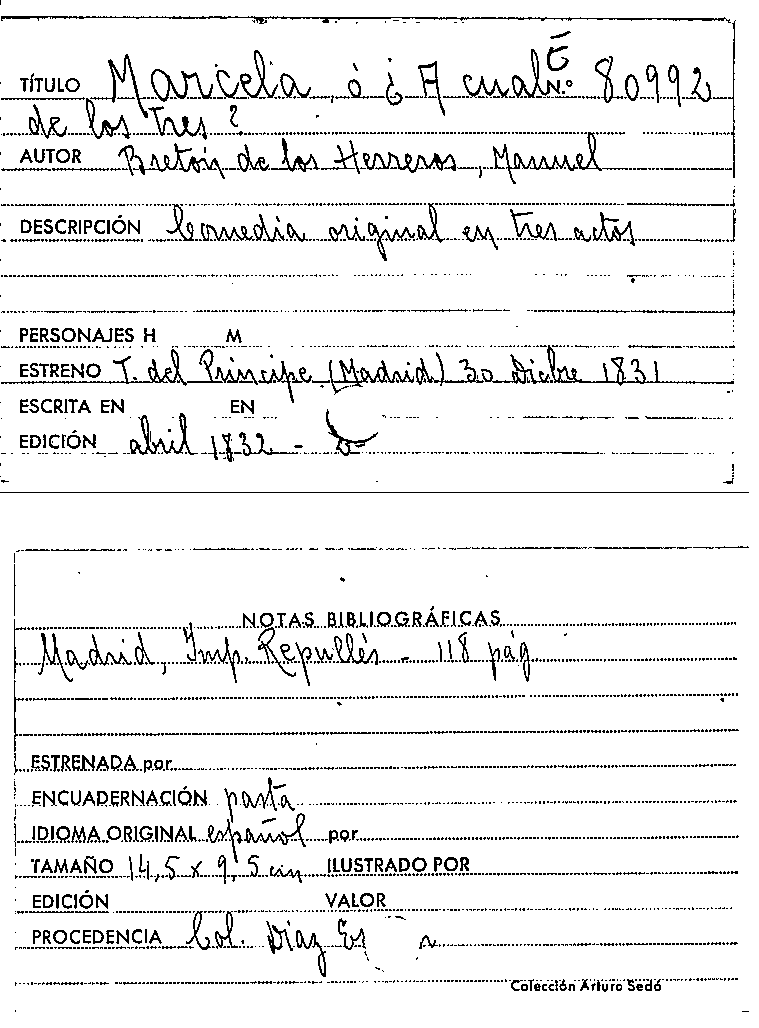 TÍTULO Marcela, ó ¿A cual N.º E 80992
de los tres?
AUTOR Bretón de los Herreros, Manuel
DESCRIPCIÓN Comedia original en tres actos
PERSONAJES H M
ESTRENO T. del Príncipe (Madrid) 30 Dicbre 1831
ESCRITA EN EN
EDICIÓN abril 1832 -
NOTAS BIBLIOGRÁFICAS
Madrid, Imp. Repullés - 118 pág
ESTRENADA por
ENCUADERNACIÓN pasta
IDIOMA ORIGINAL español por
TAMAÑO 14,5 x 9,5 cm ILUSTRADO POR
EDICIÓN VALOR
PROCEDENCIA Col. Díaz
Colección Arturo Sedó